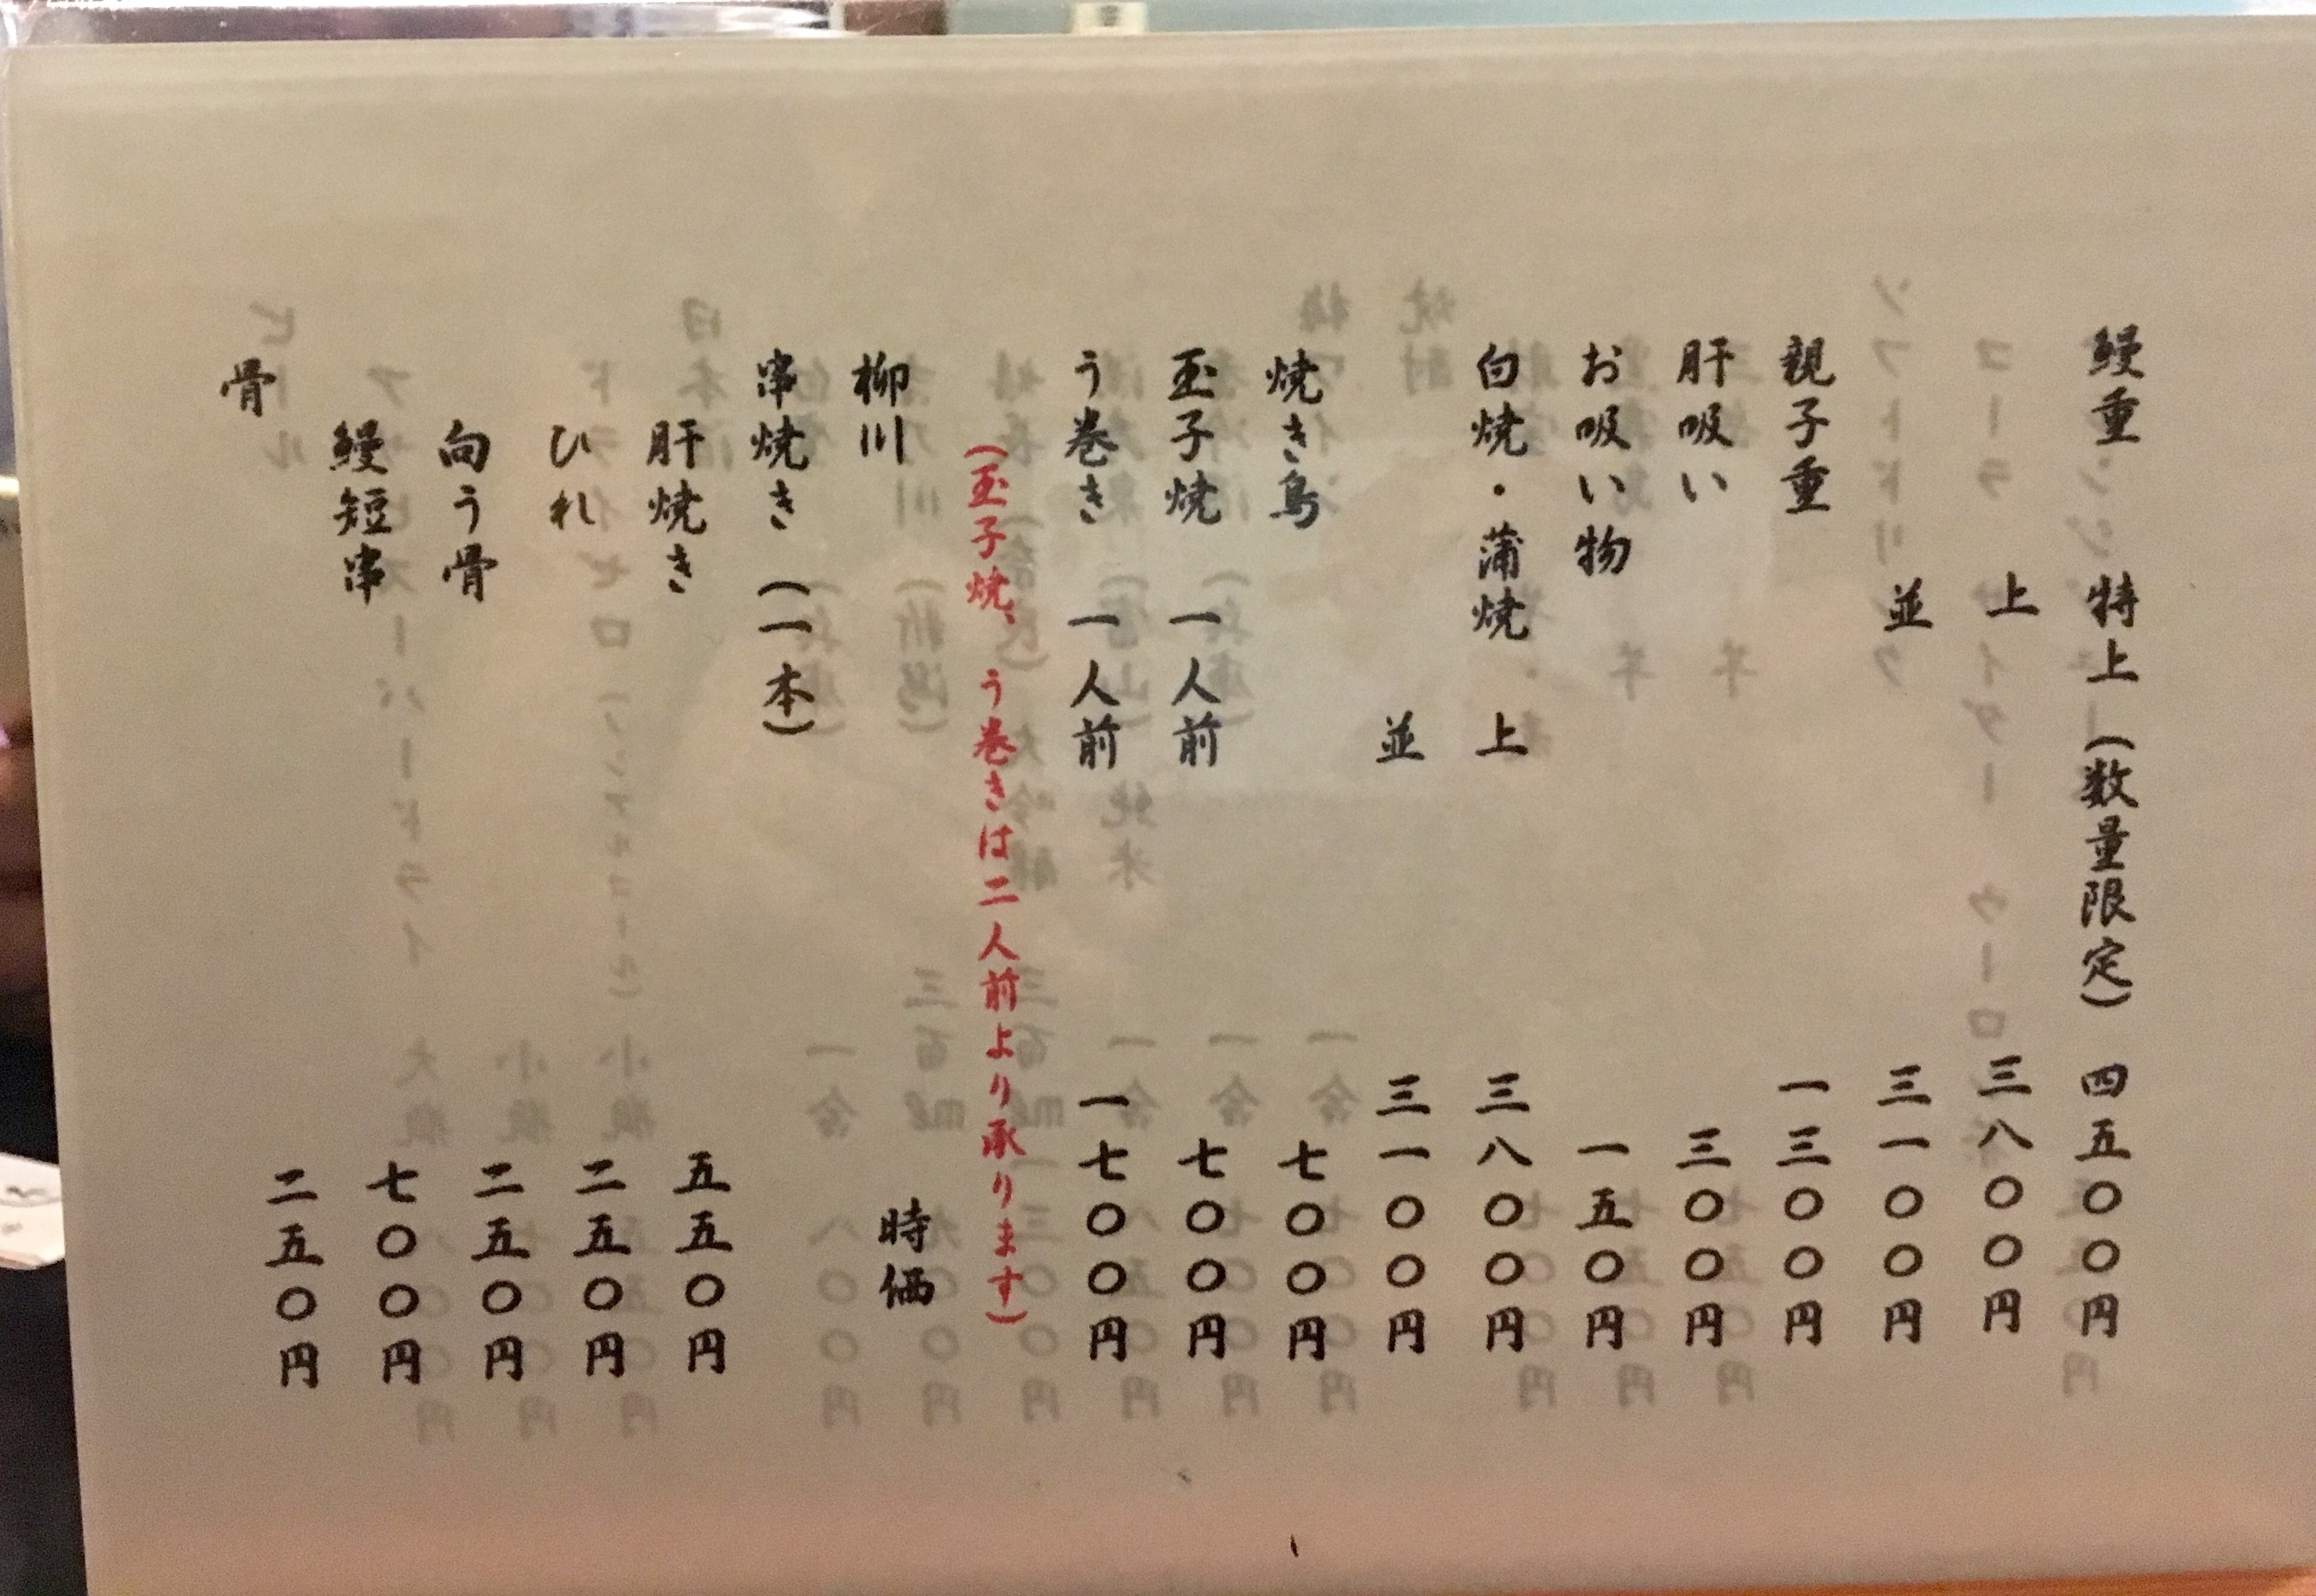 鰻重 特上(数量限定) 四五〇〇円
上 三八〇〇円
並 三一〇〇円
親子重 一三〇〇円
肝吸い 三〇〇円
お吸い物 一五〇円
白焼・蒲焼 上 三八〇〇円
並 三一〇〇円
焼き鳥 七〇〇円
玉子焼 一人前 七〇〇円
う巻き 一人前 一七〇〇円
(玉子焼、う巻きは二人前より承ります)
柳川 時価
串焼き(一本)
肝焼き 五五〇円
ひれ 二五〇円
向う骨 二五〇円
鰻短串 七〇〇円
骨 二五〇円